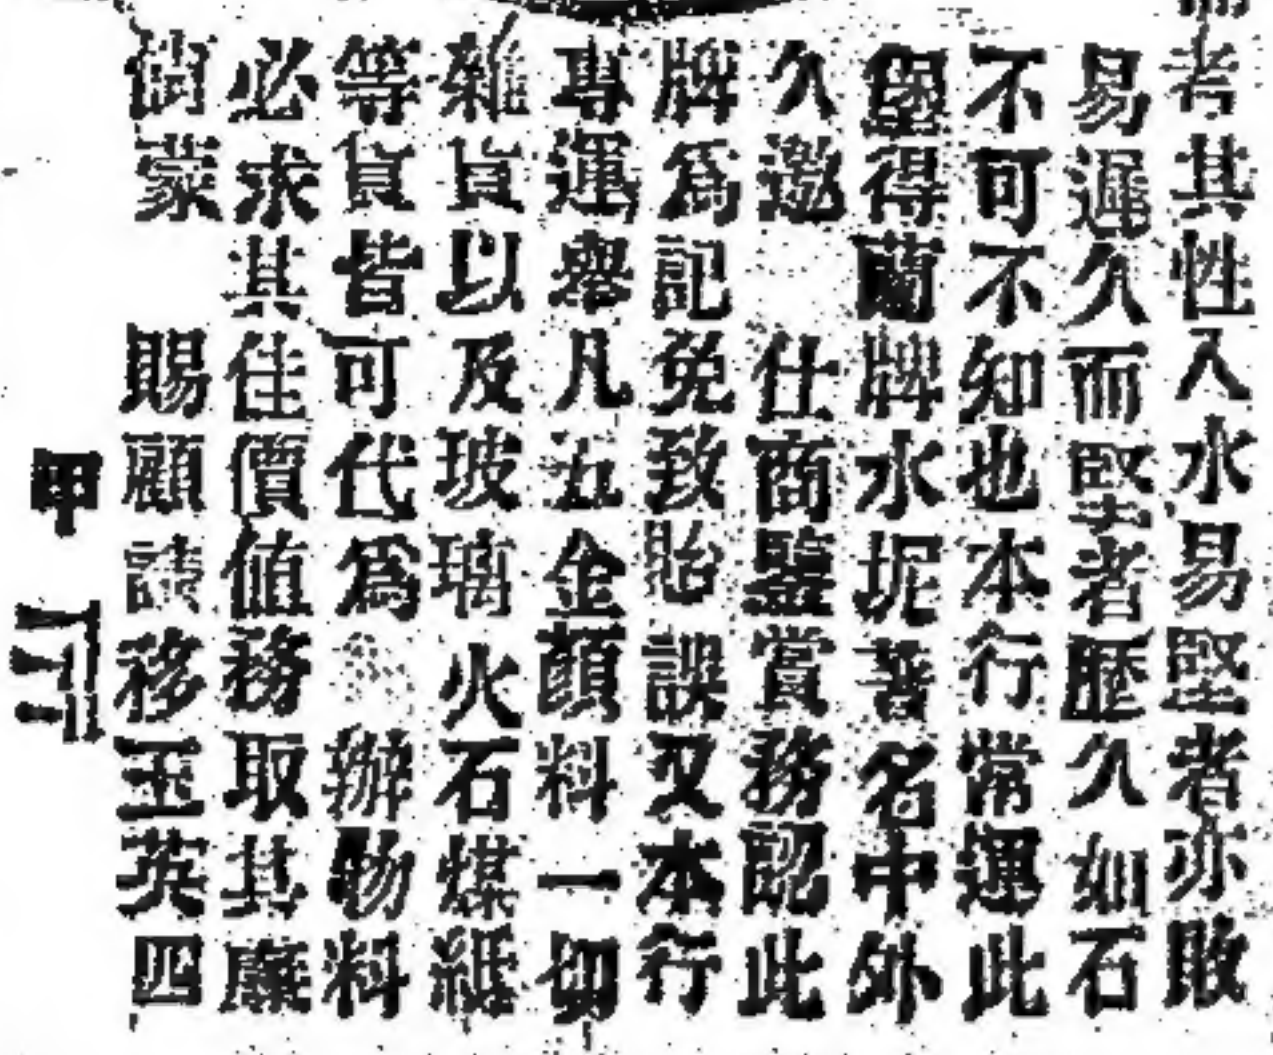 考其性入水易堅者亦敗
易遲久而堅者歷久如石
不可不知也本行常運此
堡得蘭牌水坭著名中外
久邀仕商鑒賞務認此
牌爲記免致貽誤又本行
專運舉凡五金顏料一切
雜貨以及玻璃火石煤紙
等貨皆可代爲辦物料
必求其佳價值務取其廉
倘蒙賜顧請移玉英四
甲